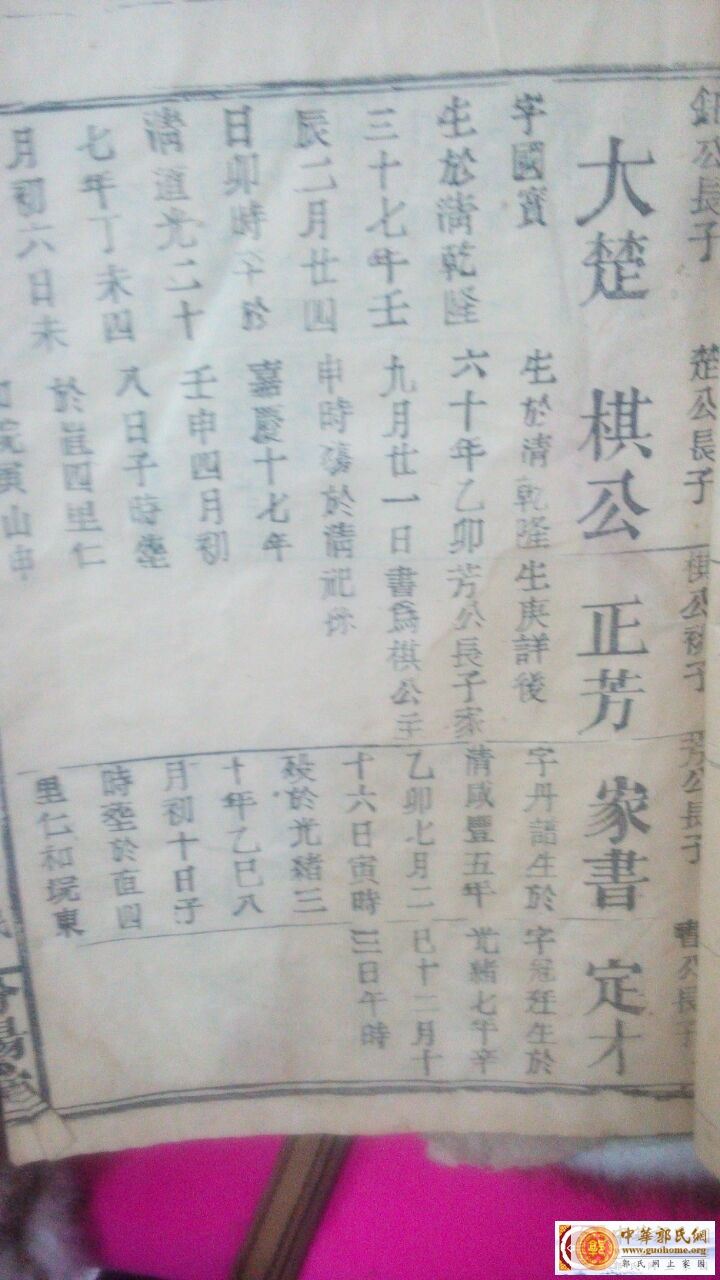 公長子
大楚
字國寶
生於清乾隆
三十七年壬
辰二月廿四
日卯時卒於
清道光二十
七年丁未四
月初六日未
楚公長子
棋公
生於清乾隆
六十年乙卯
九月廿一日
申時殤於清
嘉慶十七年
壬申四月初
八日子時塟
於崔四里仁
垸寅山申
棋公祧子
正芳
生庚詳後
芳公長子家
書爲棋公主
祀
芳公長子
家書
字丹詔生於
清咸豐五年
乙卯七月二
十六日寅時
歿於光緒三
十年乙巳八
月初十日子
時塟於直四
里仁和垸東
書公長子
定才
字冠廷生於
光緒七年辛
巳十二月十
三日午時
汾陽堂
中華郭氏網
www.guohome.org
郭氏网上家园